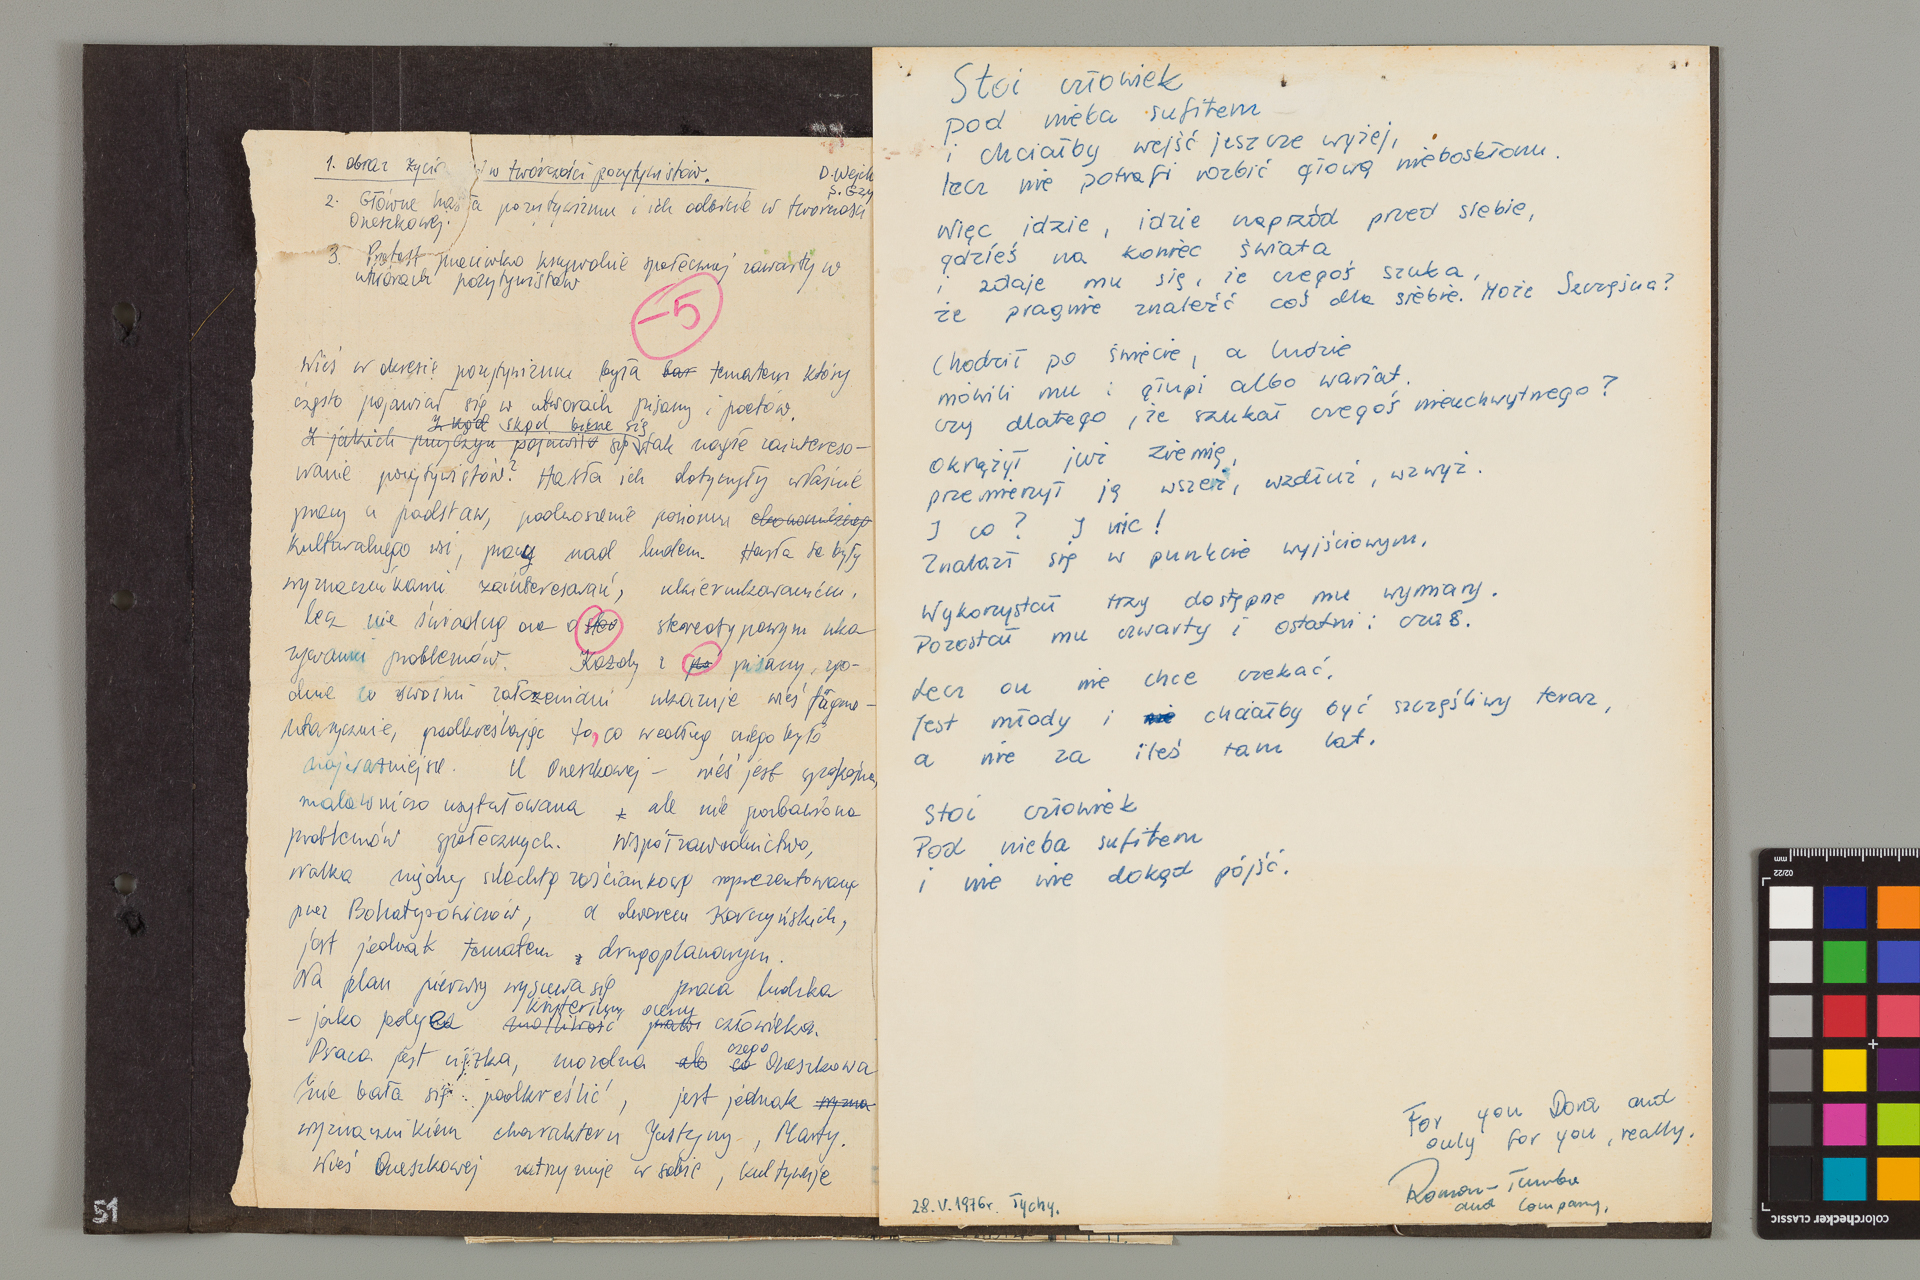 1. obraz życia w twórczości pozytywistów.
D. Wejch
2. Główne hasła pozytywizmu i ich odbicie w twórczości
Orzeszkowej.
3. Protest przeciwko krzywdzie społecznej zawarty w
utworach pozytywistów
-5
Wieś w okresie pozytywizmu była bar tematem który
często pojawiał się w utworach pisarzy i poetów.
Z kąd skąd bierze się
Z jakich przyczyn pojawiło się tak nagłe zaintereso-
wanie pozytywistów? Hasła ich dotyczyły właśnie
pracy u podstaw, podnoszenie poziomu ekonomicznego
kulturalnego wsi, pracy nad ludem. Hasła te były
wyznacznikami zainteresowań, ukierunkowaniem.
lecz nie świadczą one o ste stereotypowym uka-
zywaniu problemów. Każdy z po pisarzy, zgo-
dnie ze swoimi założeniami ukazuje wieś fragme-
ntarycznie, podkreślając to, co według niego było
najważniejsze. U Orzeszkowej – wieś jest spokojna,
malowniczo usytuowana ale nie pozbawiona
problemów społecznych. Współzawodnictwo,
walka między szlachtą zaściankową reprezentowaną
przez Bohatyrowiczów, a dworem Korczyńskich,
jest jednak tematem drugoplanowym.
Na plan pierwszy wysuwa się praca ludzka
kryterium oceny
– jako jedyne człowieka.
czego
Praca jest ciężka, mozolna ale co Orzeszkowa
nie bała się podkreślić, jest jednak wyzna
wyznacznikiem charakteru Justyny, Marty.
Wieś Orzeszkowej zatrzymuje w sobie, kultywuje
Stoi człowiek
pod nieba sufitem
i chciałby wejść jeszcze wyżej,
lecz nie potrafi rozbić głową nieboskłonu.
Więc idzie, idzie naprzód przed siebie,
gdzieś na koniec świata
i zdaje mu się, że czegoś szuka,
że pragnie znaleźć coś dla siebie. Może Szczęścia?
Chodził po świecie, a ludzie
mówili mu i głupi albo wariat.
czy dlatego, że szukał czegoś nieuchwytnego?
Okrążył już Ziemię,
przemierzył ją wszerz, wzdłuż, wzwyż.
I co? I nic!
Znalazł się w punkcie wyjściowym.
Wykorzystał trzy dostępne mu wymiary.
Pozostał mu czwarty i ostatni: czas.
Lecz on nie chce czekać.
Jest młody i nie chciałby być szczęśliwy teraz,
a nie za ileś tam lat.
Stoi człowiek
Pod nieba sufitem
i nie wie dokąd pójść.
For you Dora and
only for you, really.
Roman-Tumba
and Company.
28.V.1976r. Tychy.
51
mm
02/22
colorchecker CLASSIC